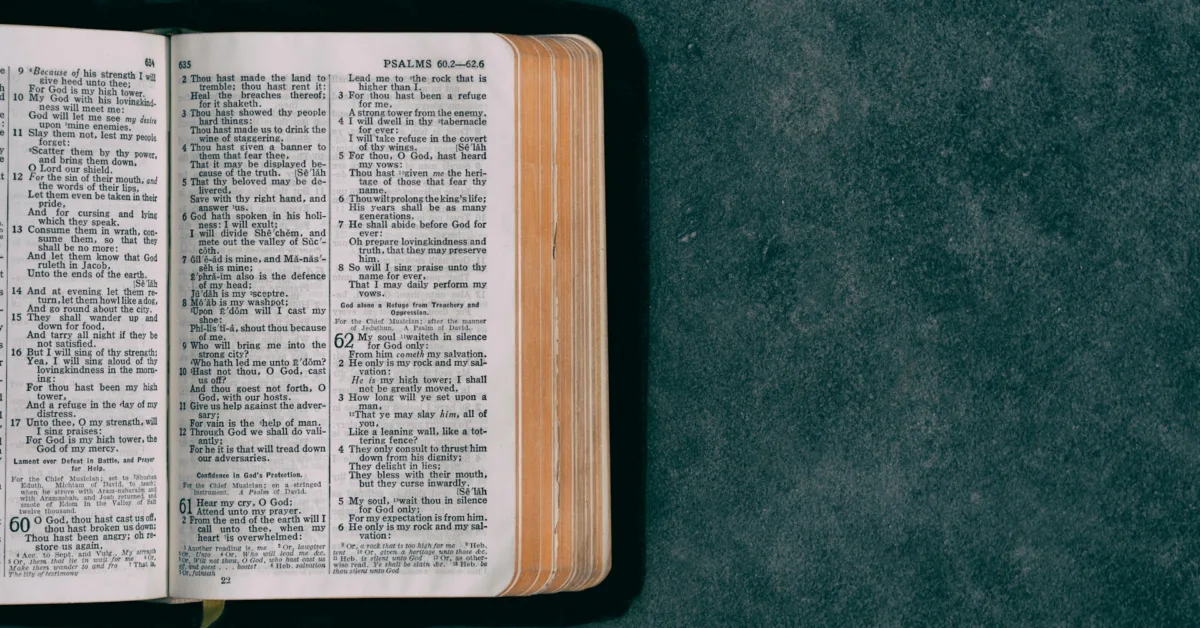 634
9 Because of his strength I will
give heed unto thee;
For God is my high tower.
10 My God with his lovingkind-
ness will meet me:
God will let me see my desire
upon mine enemies.
11 Slay them not, lest my people
forget:
Scatter them by thy power,
and bring them down,
O Lord our shield.
12 For the sin of their mouth, and
the words of their lips,
Let them even be taken in their
pride,
And for cursing and lying
which they speak.
13 Consume them in wrath, con-
sume them, so that they
shall be no more:
And let them know that God
ruleth in Jacob,
Unto the ends of the earth.
[Sē´lăh
14 And at evening let them re-
turn, let them howl like a dog,
And go round about the city.
15 They shall wander up and
down for food,
And tarry all night if they be
not satisfied.
16 But I will sing of thy strength;
Yea, I will sing aloud of thy
lovingkindness in the morn-
ing:
For thou hast been my high
tower,
And a refuge in the day of my
distress.
17 Unto thee, O my strength, will
I sing praises:
For God is my high tower, the
God of my mercy.
Lament over Defeat in Battle, and Prayer
for Help.
For the Chief Musician; set to Shushan
Eduth. Michtam of David, to teach;
when he strove with Aram-naharaim and
with Aram-zobah, and Joab returned, and
smote of Edom in the Valley of Salt
twelve thousand.
60 O God, thou hast cast us off,
thou hast broken us down;
Thou hast been angry; oh re-
store us again.
635
PSALMS 60.2—62.6
2 Thou hast made the land to
tremble; thou hast rent it:
Heal the breaches thereof;
for it shaketh.
3 Thou hast showed thy people
hard things:
Thou hast made us to drink the
wine of staggering.
4 Thou hast given a banner to
them that fear thee,
That it may be displayed be-
cause of the truth. [Sē´lăh
5 That thy beloved may be de-
livered,
Save with thy right hand, and
answer us.
6 God hath spoken in his holi-
ness: I will exult;
I will divide Shē´chĕm, and
mete out the valley of Sŭc´-
cŏth.
7 Gĭl´ē-ăd is mine, and Mă-năs´-
sēh is mine;
Ē´phră-im also is the defence
of my head;
Jū´dăh is my sceptre.
8 Mō´ăb is my washpot;
Upon Ē´dŏm will I cast my
shoe:
Phĭ-lĭs´tĭ-ă, shout thou because
of me.
9 Who will bring me into the
strong city?
Who hath led me unto Ē´dŏm?
10 Hast not thou, O God, cast
us off?
And thou goest not forth, O
God, with our hosts.
11 Give us help against the adver-
sary;
For vain is the help of man.
12 Through God we shall do vali-
antly;
For he it is that will tread down
our adversaries.
Confidence in God's Protection.
For the Chief Musician; on a stringed
instrument. A Psalm of David.
61 Hear my cry, O God;
Attend unto my prayer.
2 From the end of the earth will I
call unto thee, when my
heart is overwhelmed:
Lead me to the rock that is
higher than I.
3 For thou hast been a refuge
for me,
A strong tower from the enemy.
4 I will dwell in thy tabernacle
for ever:
I will take refuge in the covert
of thy wings. [Sē´lăh
5 For thou, O God, hast heard
my vows:
Thou hast given me the heri-
tage of those that fear thy
name.
6 Thou wilt prolong the king's life;
His years shall be as many
generations.
7 He shall abide before God for
ever:
Oh prepare lovingkindness and
truth, that they may preserve
him.
8 So will I sing praise unto thy
name for ever,
That I may daily perform my
vows.
God alone a Refuge from Treachery and
Oppression.
For the Chief Musician; after the manner
of Jeduthun. A Psalm of David.
62 My soul waiteth in silence
for God only:
From him cometh my salvation.
2 He only is my rock and my sal-
vation:
He is my high tower; I shall
not be greatly moved.
3 How long will ye set upon a
man,
That ye may slay him, all of
you,
Like a leaning wall, like a tot-
tering fence?
4 They only consult to thrust him
down from his dignity;
They delight in lies;
They bless with their mouth,
but they curse inwardly.
[Sē´lăh
5 My soul, wait thou in silence
for God only;
For my expectation is from him.
6 He only is my rock and my sal-
vation:
22